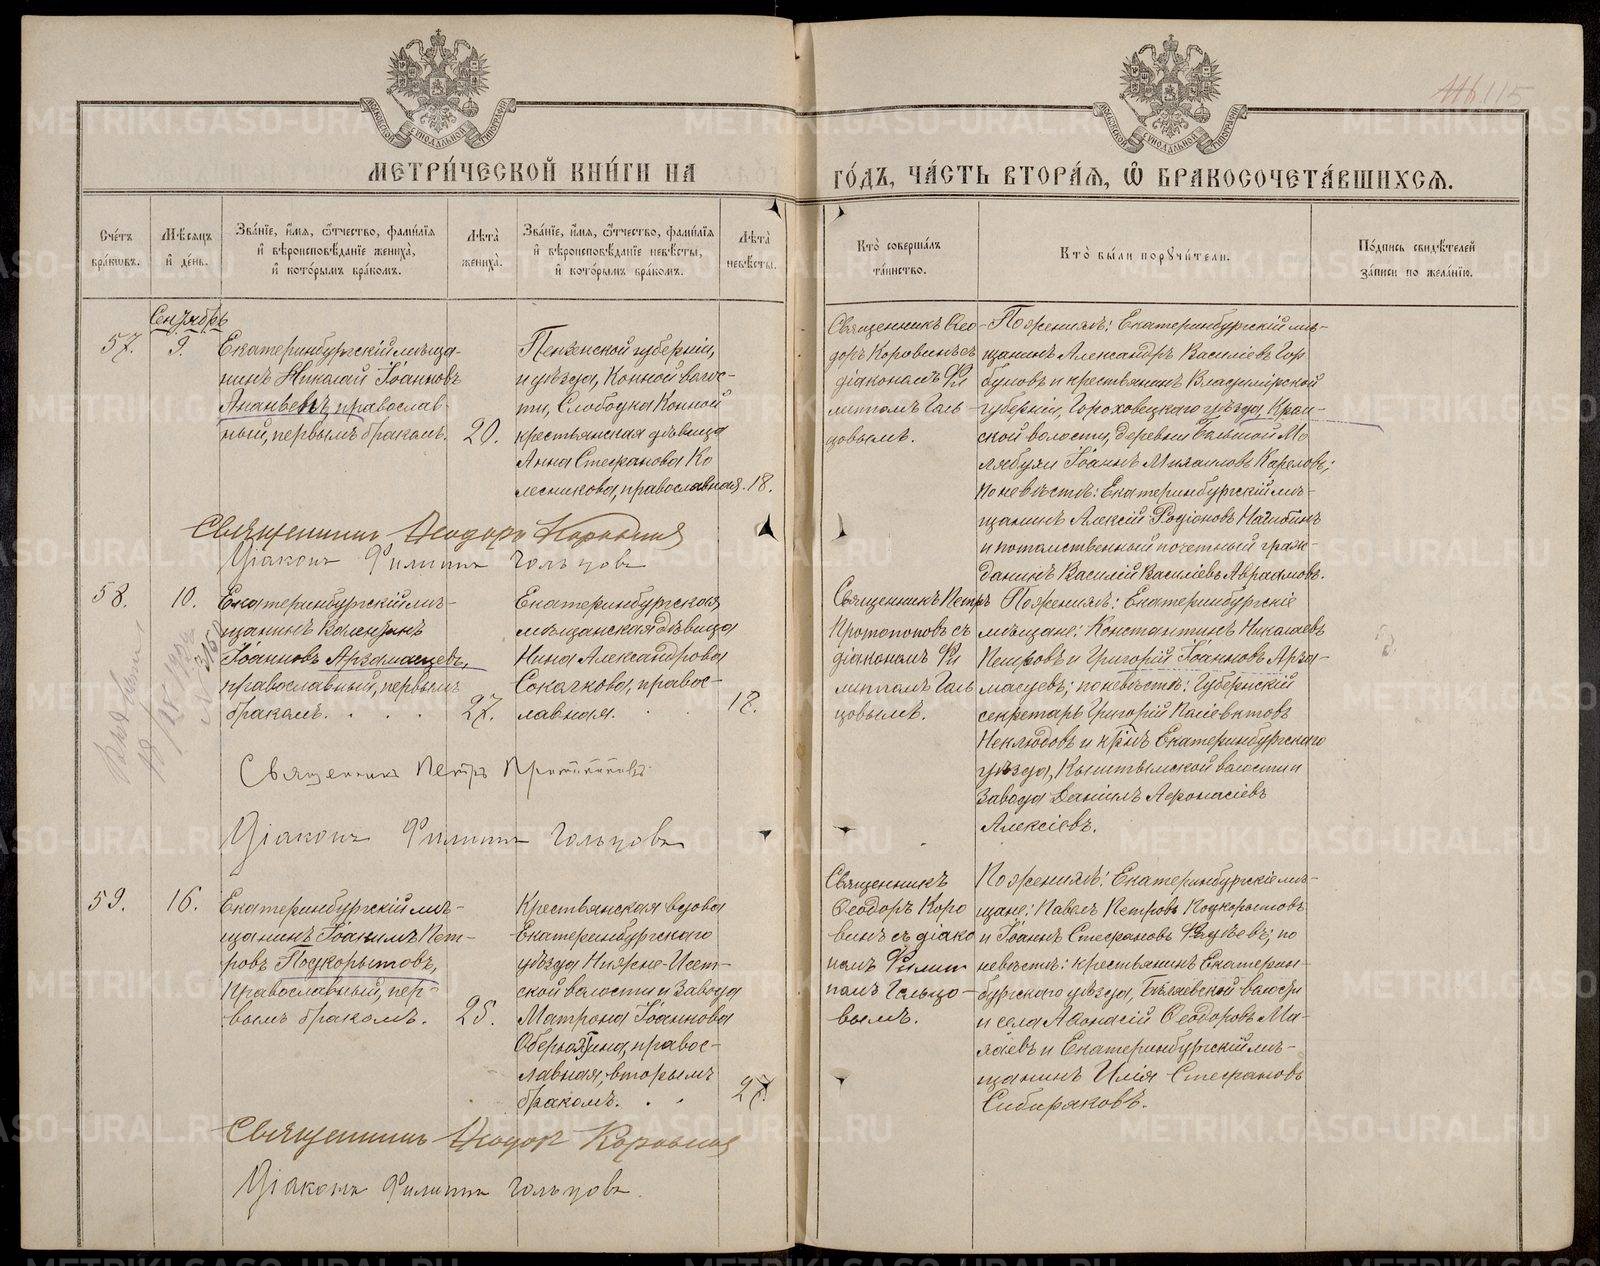 115
МЕТРИ́ЧЕСКОЙ КНИ́ГИ НА
ГО́ДЪ, ЧА́СТЬ ВТОРА́Я, Ѿ БРАКОСОЧЕТА́ВШИХСЯ.
Сче́тъ
бра́ковъ.
Мѣ́сяцъ
и҆ де́нь.
Зва́нїе, и҆́мя, ѻ҆́тчество, фами́лїя
и҆ вѣроисповѣ́данїе жениха̀,
и҆ кото́рымъ бра́комъ.
Лѣ́та̀
жениха̀.
Зва́нїе, и҆́мя, ѻ҆́тчество, фами́лїя
и҆ вѣроисповѣ́данїе невѣ́сты,
и҆ кото́рымъ бра́комъ.
Лѣ́та̀
невѣ́сты.
Кто̀ соверша́лъ
та́инство.
Кто̀ бы́ли порꙋчи́тели.
По́дпись свидѣ́телей
за́писи по жела́нїю.
Сентябрь
57.
9.
Екатеринбургскій мѣща-
нинъ Николай Іоанновъ
Ананьевъ, православ-
ный, первымъ бракомъ.
20.
Пензенской губерніи,
и уѣзда, Конной волос-
ти, Слободка Конной
крестьянская дѣвица
Анна Стефанова Ко
лесникова, православная.
18.
Священникъ Ѳео-
доръ Коровинъ съ
діакономъ Фи
липпомъ Голь
цовымъ.
По женихѣ: Екатеринбургскій мѣ-
щанинъ Александръ Василіевъ Гор
буновъ и крестьянинъ Владимірской
губерніи, Гороховецкаго уѣзда, Крас-
ской волости, деревни Большой Мо
Іоаннъ Михаиловъ Карелов;
по невѣстѣ: Екатеринбургскій мѣ-
щанинъ Алексій Родіоновъ Нагибинъ
и потомственный почетный граж-
данинъ Василій Василіевъ Авраамовъ.
Священникъ Ѳеодоръ Коровинъ
Діаконъ Филиппъ Гольцовъ
58.
10.
Екатеринбургскій мѣ-
щанинъ Валентинъ
Іоанновъ Арзамасцевъ,
православный, первымъ
бракомъ.
27.
Екатеринбургская
мѣщанская дѣвица
Нина Александрова
Соначкова, правос-
лавная.
18.
Священникъ Петръ
Протопоповъ съ
діакономъ Фи
липпомъ Голь
цовымъ.
По женихѣ: Екатеринбургскіе
мѣщане: Константинъ Николаевъ
Петровъ и Григорій Іоанновъ Арза-
масцевъ; по невѣстѣ: Губернскій
секретарь Григорій Поліевктовъ
Неклюдовъ и кр-нъ Екатеринбургскаго
уѣзда, Кыштымской волости и
Завода Даніилъ Аѳонасіевъ
Алексіевъ.
Священникъ Петръ Протопоповъ
Діаконъ Филиппъ Гольцовъ
59.
16.
Екатеринбургскій мѣ-
щанинъ Іоакимъ Пет-
ровъ Подкорытовъ,
Православный, пер-
вымъ бракомъ.
25.
Крестьянская вдова
Екатеринбургскаго
уѣзда Нижне-Исет-
ской волости и Завода
Матрона Іоаннова
Оберюхтина, правос-
лавная, вторымъ
бракомъ.
27.
Священникъ
Ѳеодоръ Коро
винъ съ діако
номъ Филип
помъ Гольцо-
вымъ.
По женихѣ: Екатеринбургскіе мѣ-
щане: Павелъ Петровъ Подкорытовъ
и Іоаннъ Стефановъ по
невѣстѣ: крестьянинъ Екатерин-
бургскаго уѣзда, волости
и села Аѳонасій Ѳеодоровъ Ма-
и Екатеринбургскій мѣ-
щанинъ Илія Стефановъ
Сибиряковъ.
Священникъ Ѳеодоръ Коровинъ
Діаконъ Филиппъ Гольцовъ.
METRIKI.GASO-URAL.RU